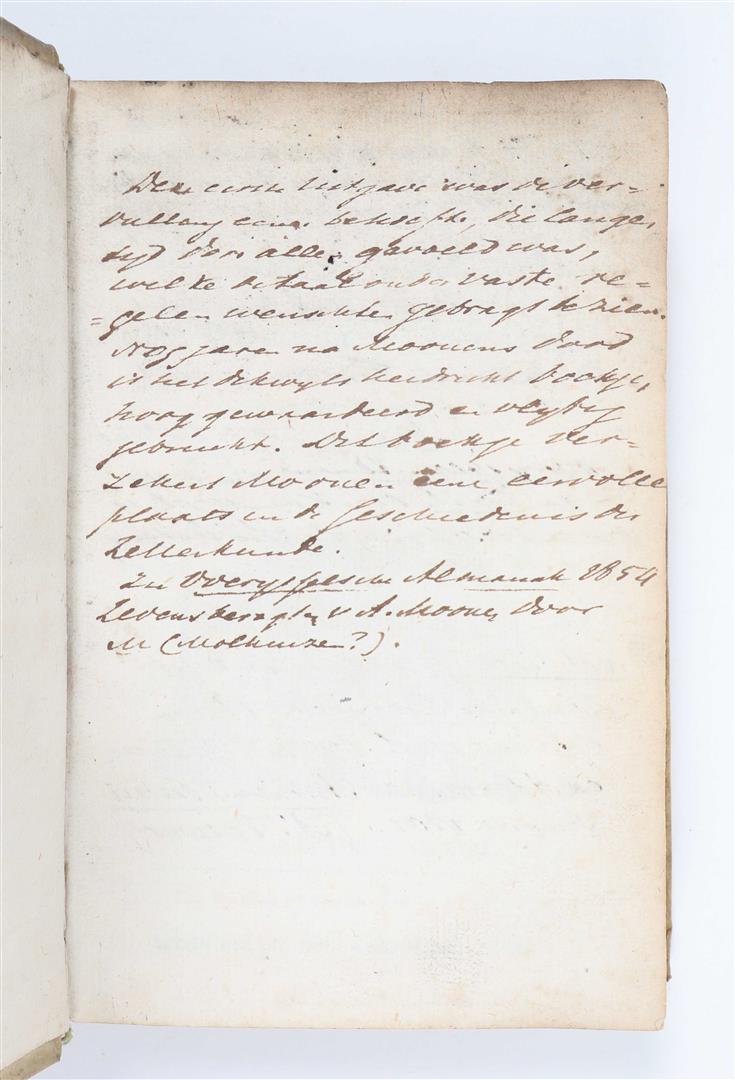 Deze eerste Uitgave was de ver-
vulling eener behoefte, die langen
tyd door allen gevoeld was,
welke de taal onder vaste re-
=gelen wenschten gebragt te zien.
Nog jaren na Moonens dood
is het dikwyls herdrukt boekje,
hoog gewaardeerd en vlytig
gebruikt. Dit boekje ver-
zekert Moonen eene eervolle
plaats in de Geschiedenis der
Letterkunde.
Zie Overysselsche Almanak 1854
Levensberigt v A. Moonen door
M (Molhuizen?).